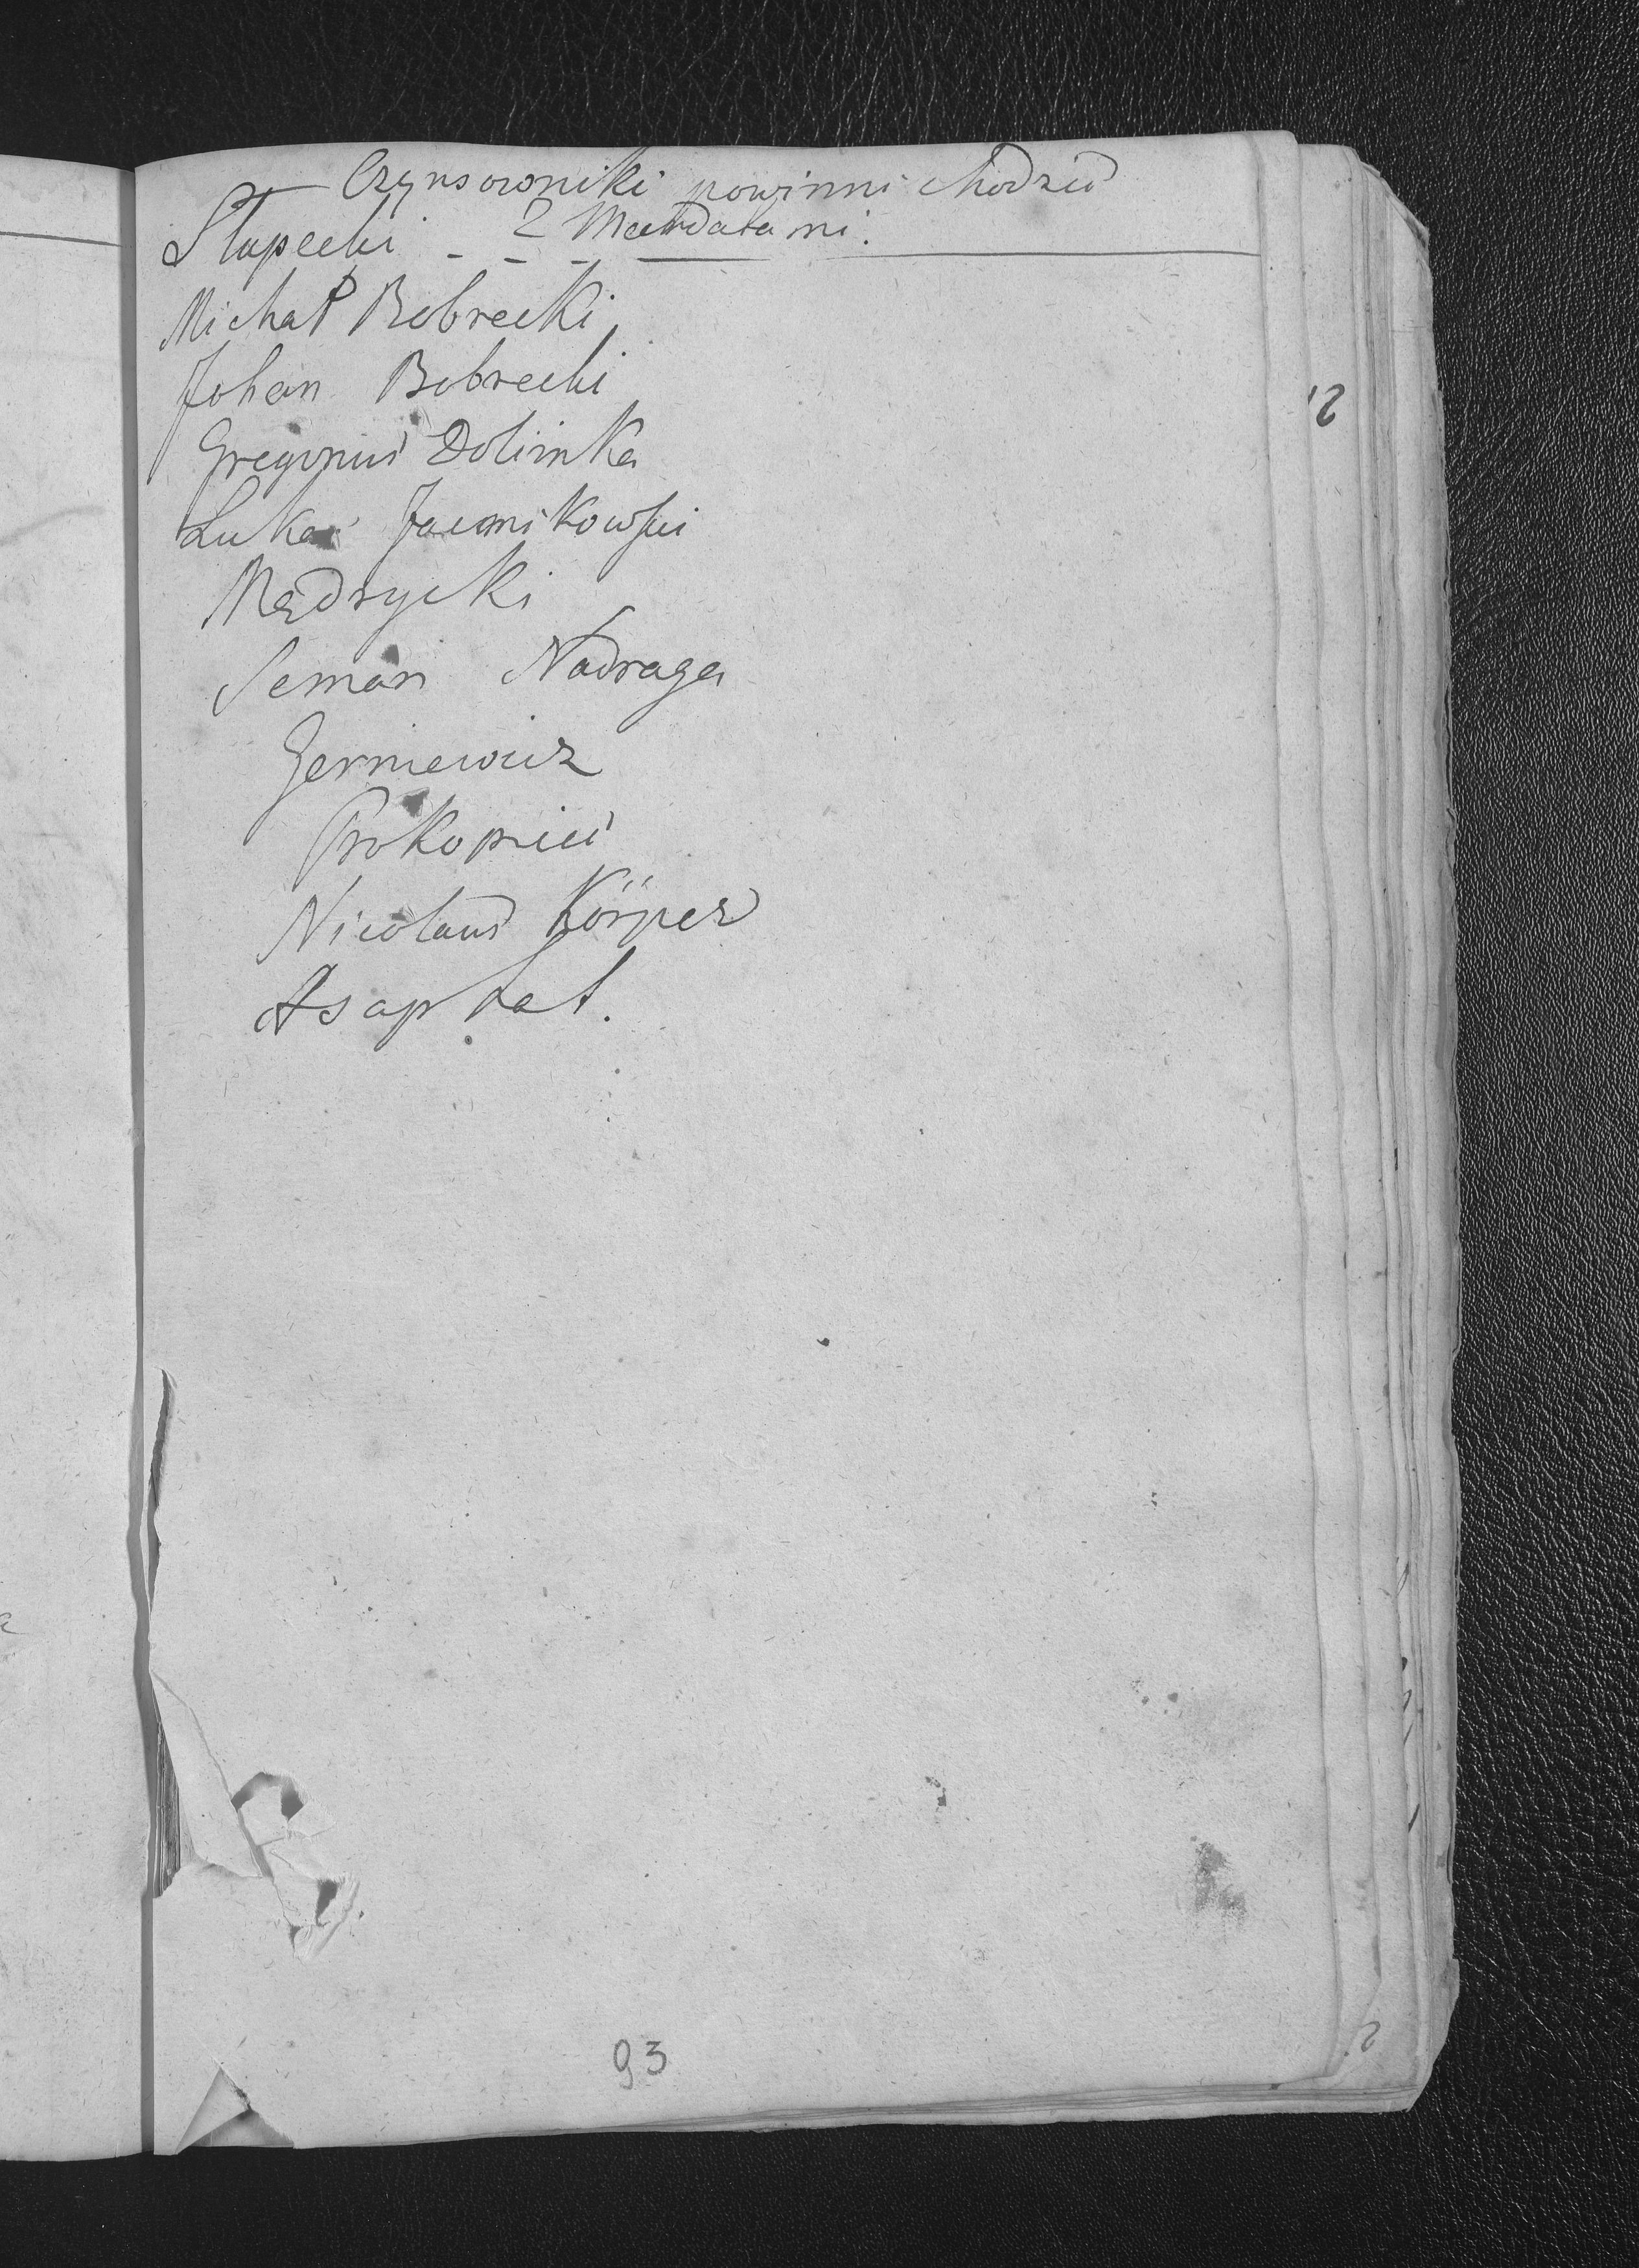 Czynsowniki powinni chodzić
Słupecki - - - z Mandatami.
Michał Bobrecki
Johan Bobrecki
Gregorius Dolinka
Lukas
Mądrycki
Seman Nadraga
Gerniewicz
Prokopici
Nicolaus Körper
Asaphat.
12
93